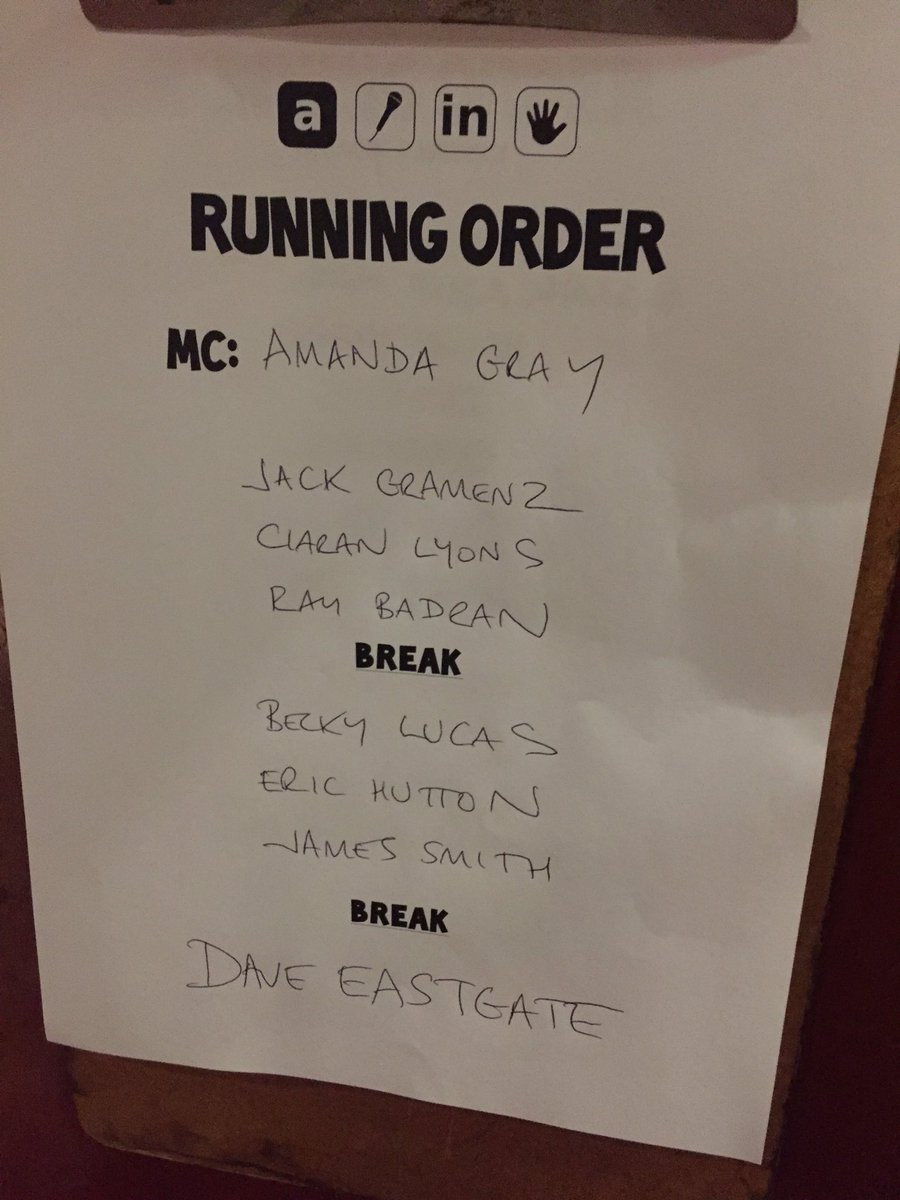 a in
RUNNING ORDER
MC: AMANDA GRAY
JACK GRAMENZ
CIARAN LYONS
RAY BADRAN
BREAK
BECKY LUCAS
ERIC HUTTON
JAMES SMITH
BREAK
DAVE EASTGATE